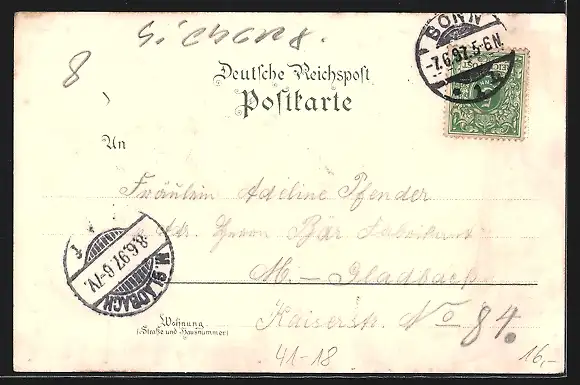 8
BONN
-7.6.97.5-6N.
Deutsche Reichspost
Postkarte
An
Fräulein Adeline Pfender
Adr. Herrn Bär Fabrikant
M.-Gladbach
Kaiserstr. No 84.
M. GLADBACH
8.6.97.6-7V.
Wohnung
(Straße und Hausnummer)
41-18
16,-